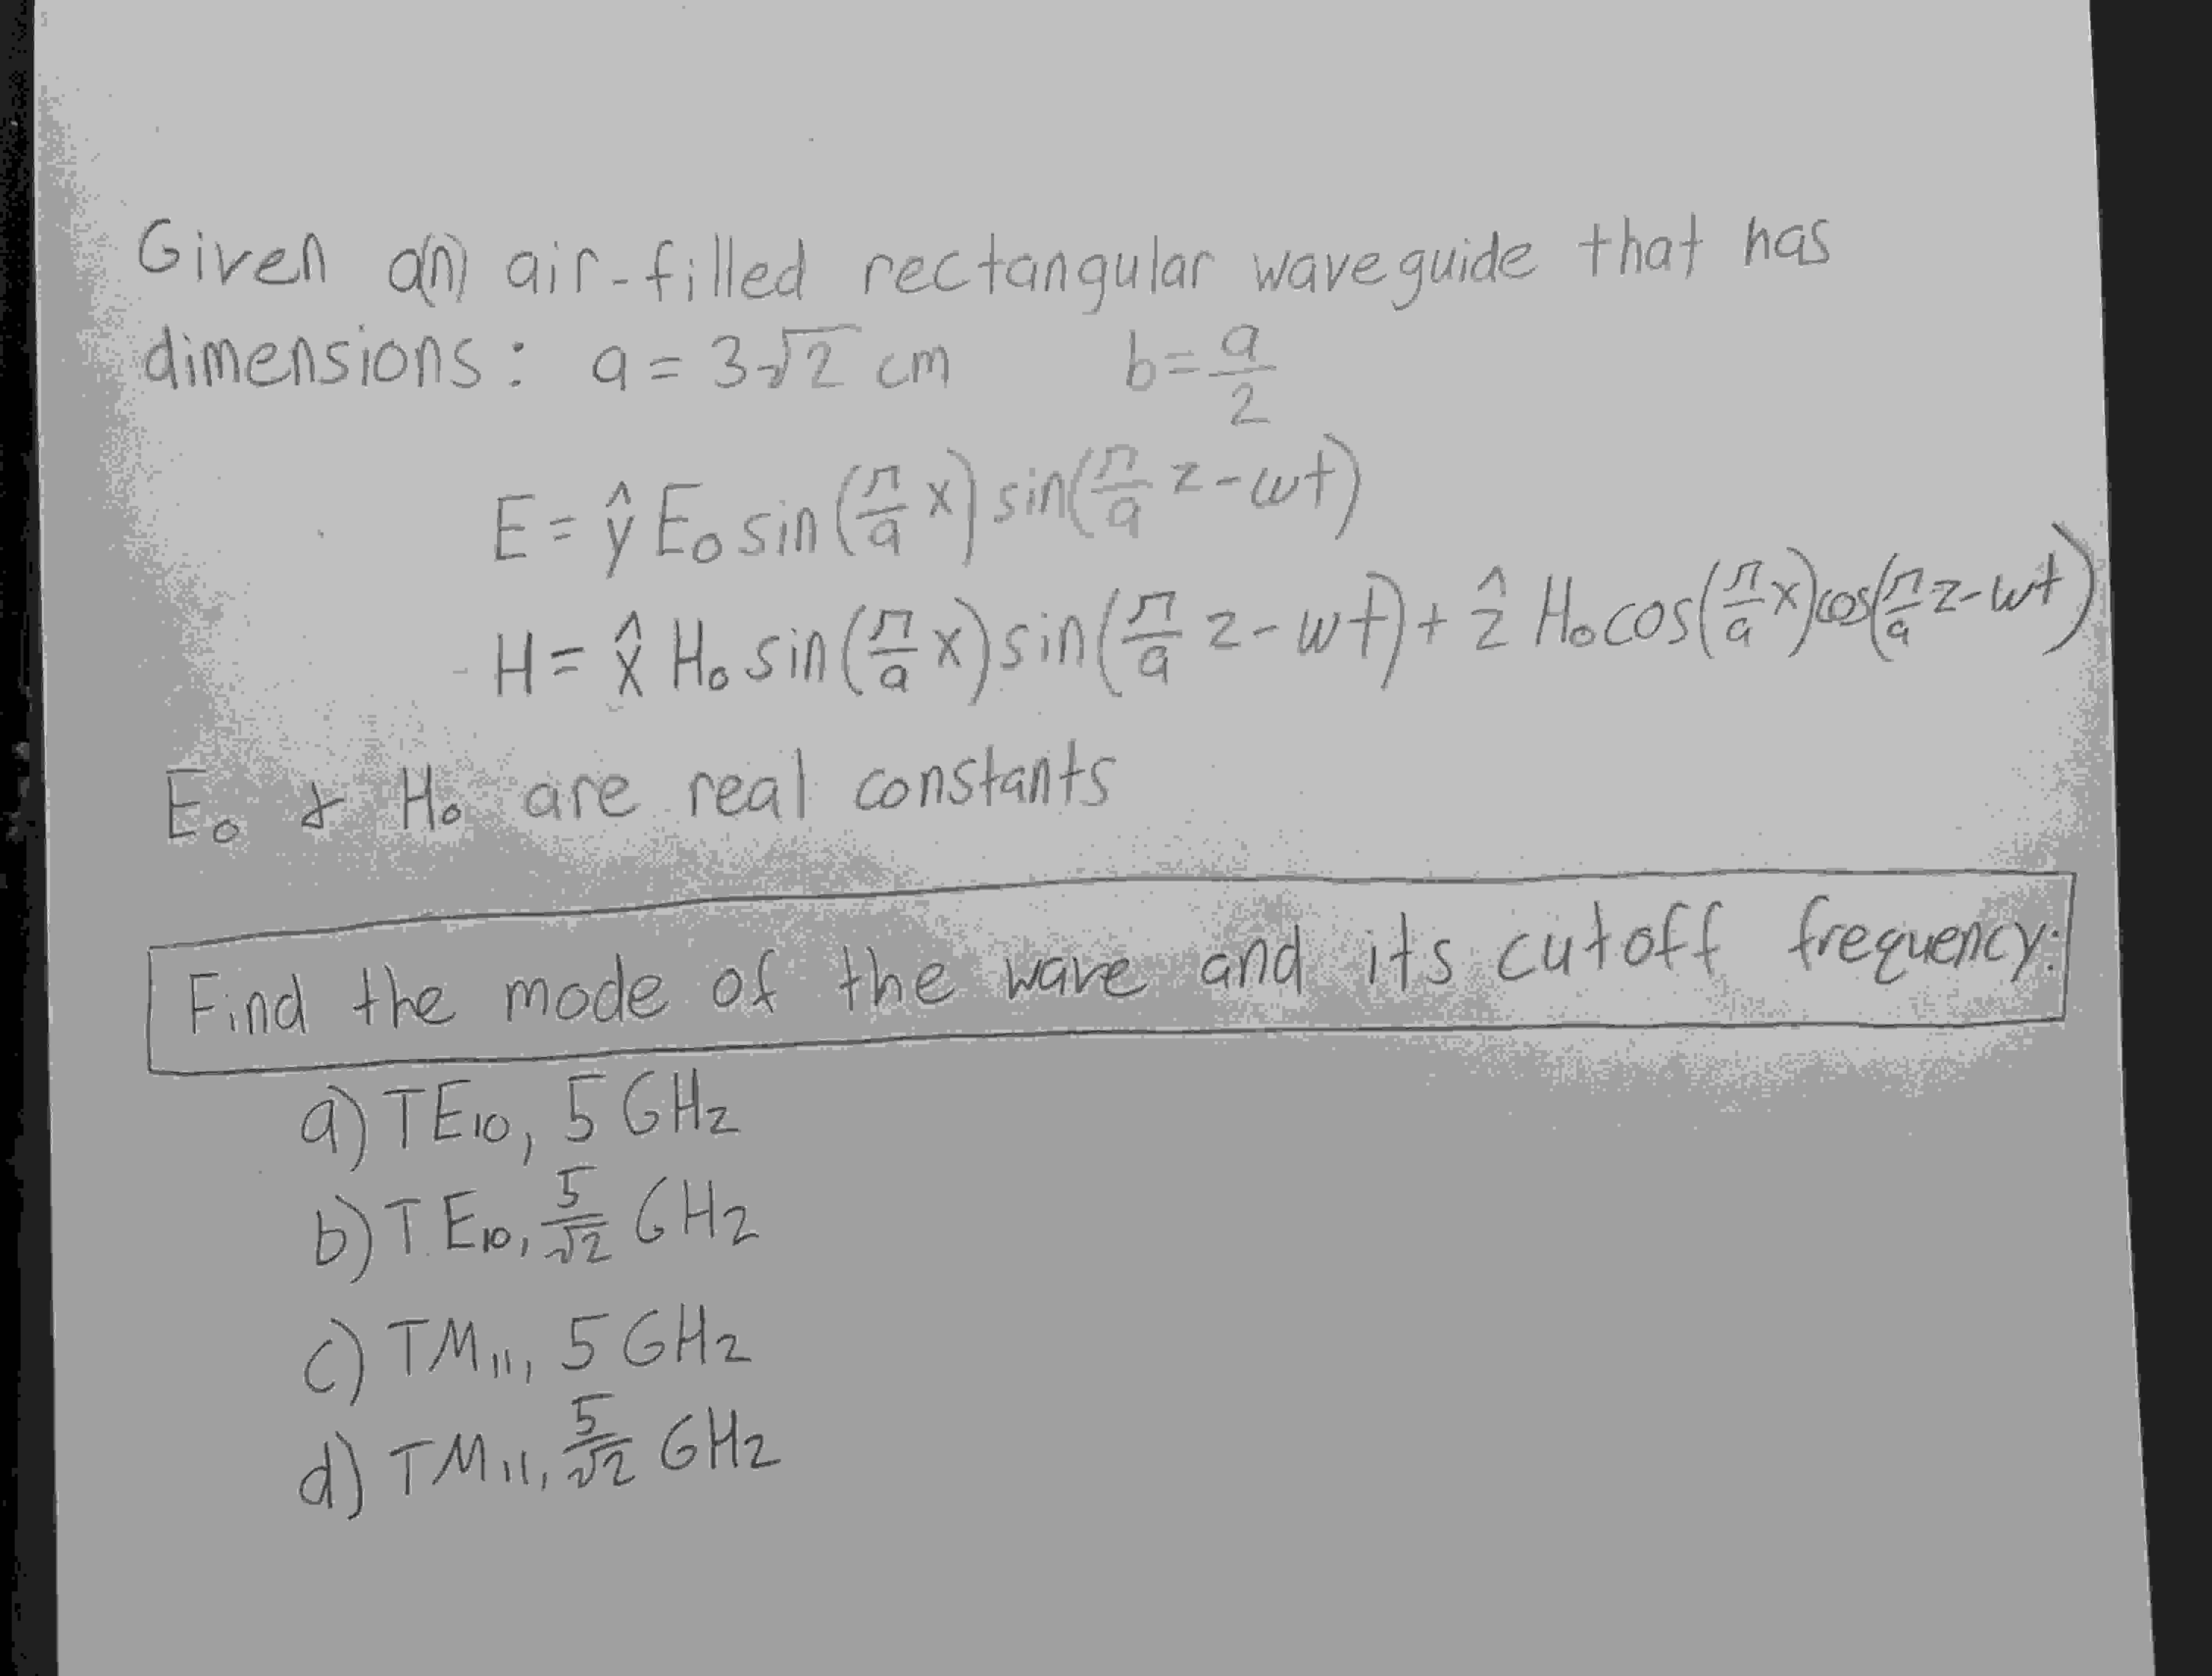 Given a(n) air-filled rectangular waveguide that has
dimensions: a = 3√2 cm b = a/2
E = ŷ E₀ sin(π/a x) sin(π/a z - ωt)
H = x̂ H₀ sin(π/a x) sin(π/a z - ωt) + ẑ H₀ cos(π/a x) cos(π/a z - ωt)
E₀ & H₀ are real constants
Find the mode of the wave and its cutoff frequency:
a) TE₁₀, 5 GHz
b) TE₁₀, 5/√2 GHz
c) TM₁₁, 5 GHz
d) TM₁₁, 5/√2 GHz